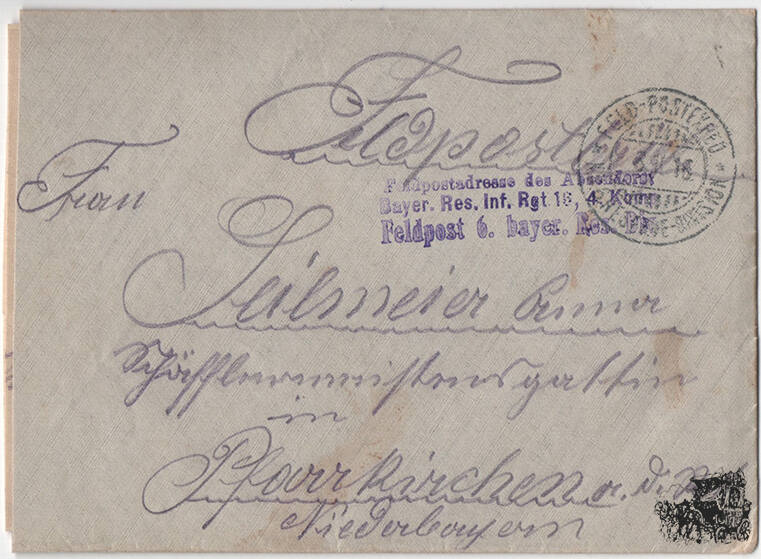 Feldpost
Feldpostadresse des Absenders:
Bayer. Res. Inf. Rgt. 16, 4. Komp.
Feldpost 6. bayer. Res. Div.
FELD-POSTEXPED
RESERVE-DIVISION
Frau
Seilmeier Anna
Schäfflermeistersgattin
in
Pfarrkirchen a. d. Rott
Niederbayern